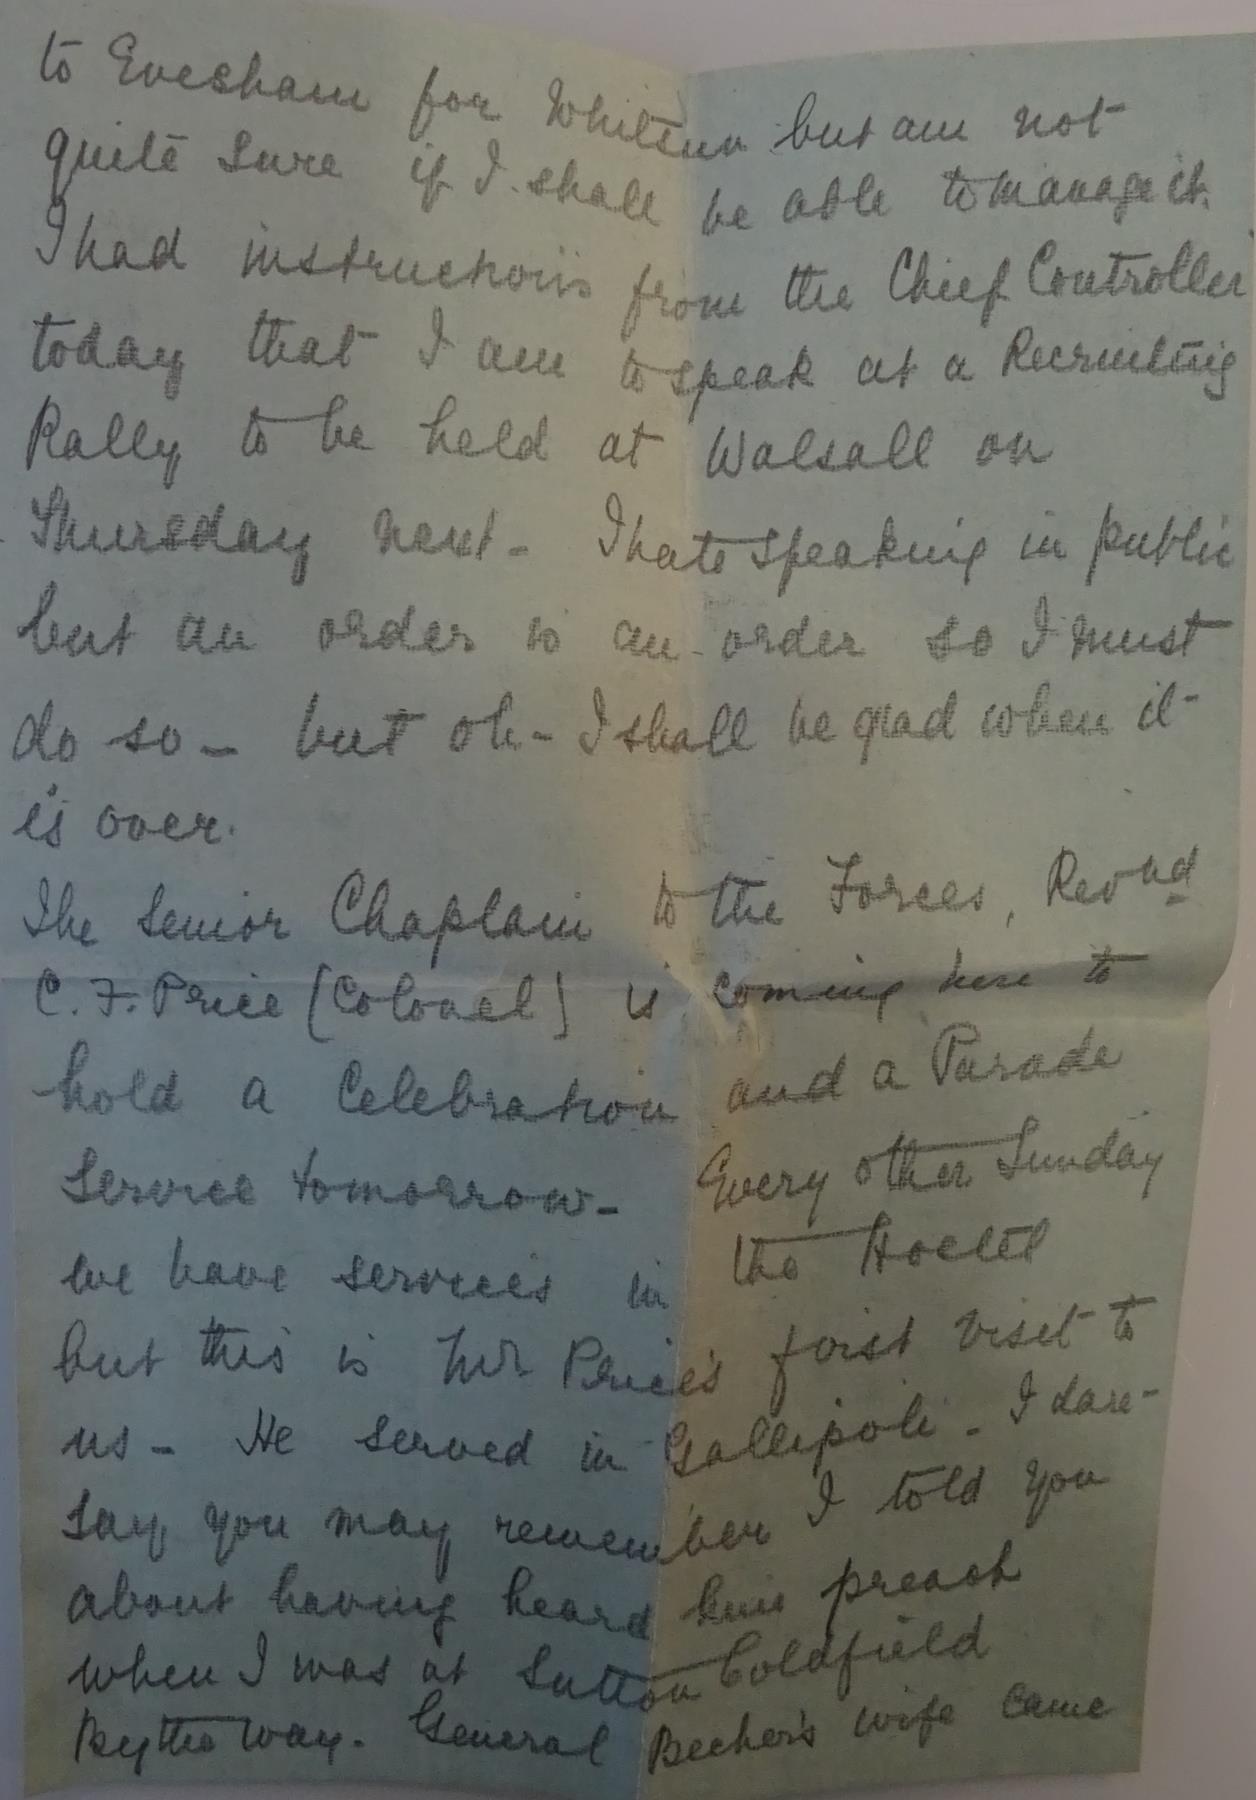 to Evesham for Whitsun but am not
quite sure if I shall be able to manage it.
I had instructions from the Chief Controller
today that I am to speak at a Recruiting
Rally to be held at Walsall on
Thursday next - I hate speaking in public
but an order is an order so I must
do so - but oh - I shall be glad when it
is over.
The Senior Chaplain to the Forces, Revnd
C. F. Price [Colonel] is coming here to
hold a Celebration and a Parade
Service tomorrow - Every other Sunday
we have services in the Hostel
but this is Mr Price's first visit to
us - He served in Gallipoli - I dare-
say you may remember I told you
about having heard him preach
when I was at Sutton Coldfield
By the way - General Becher's wife came